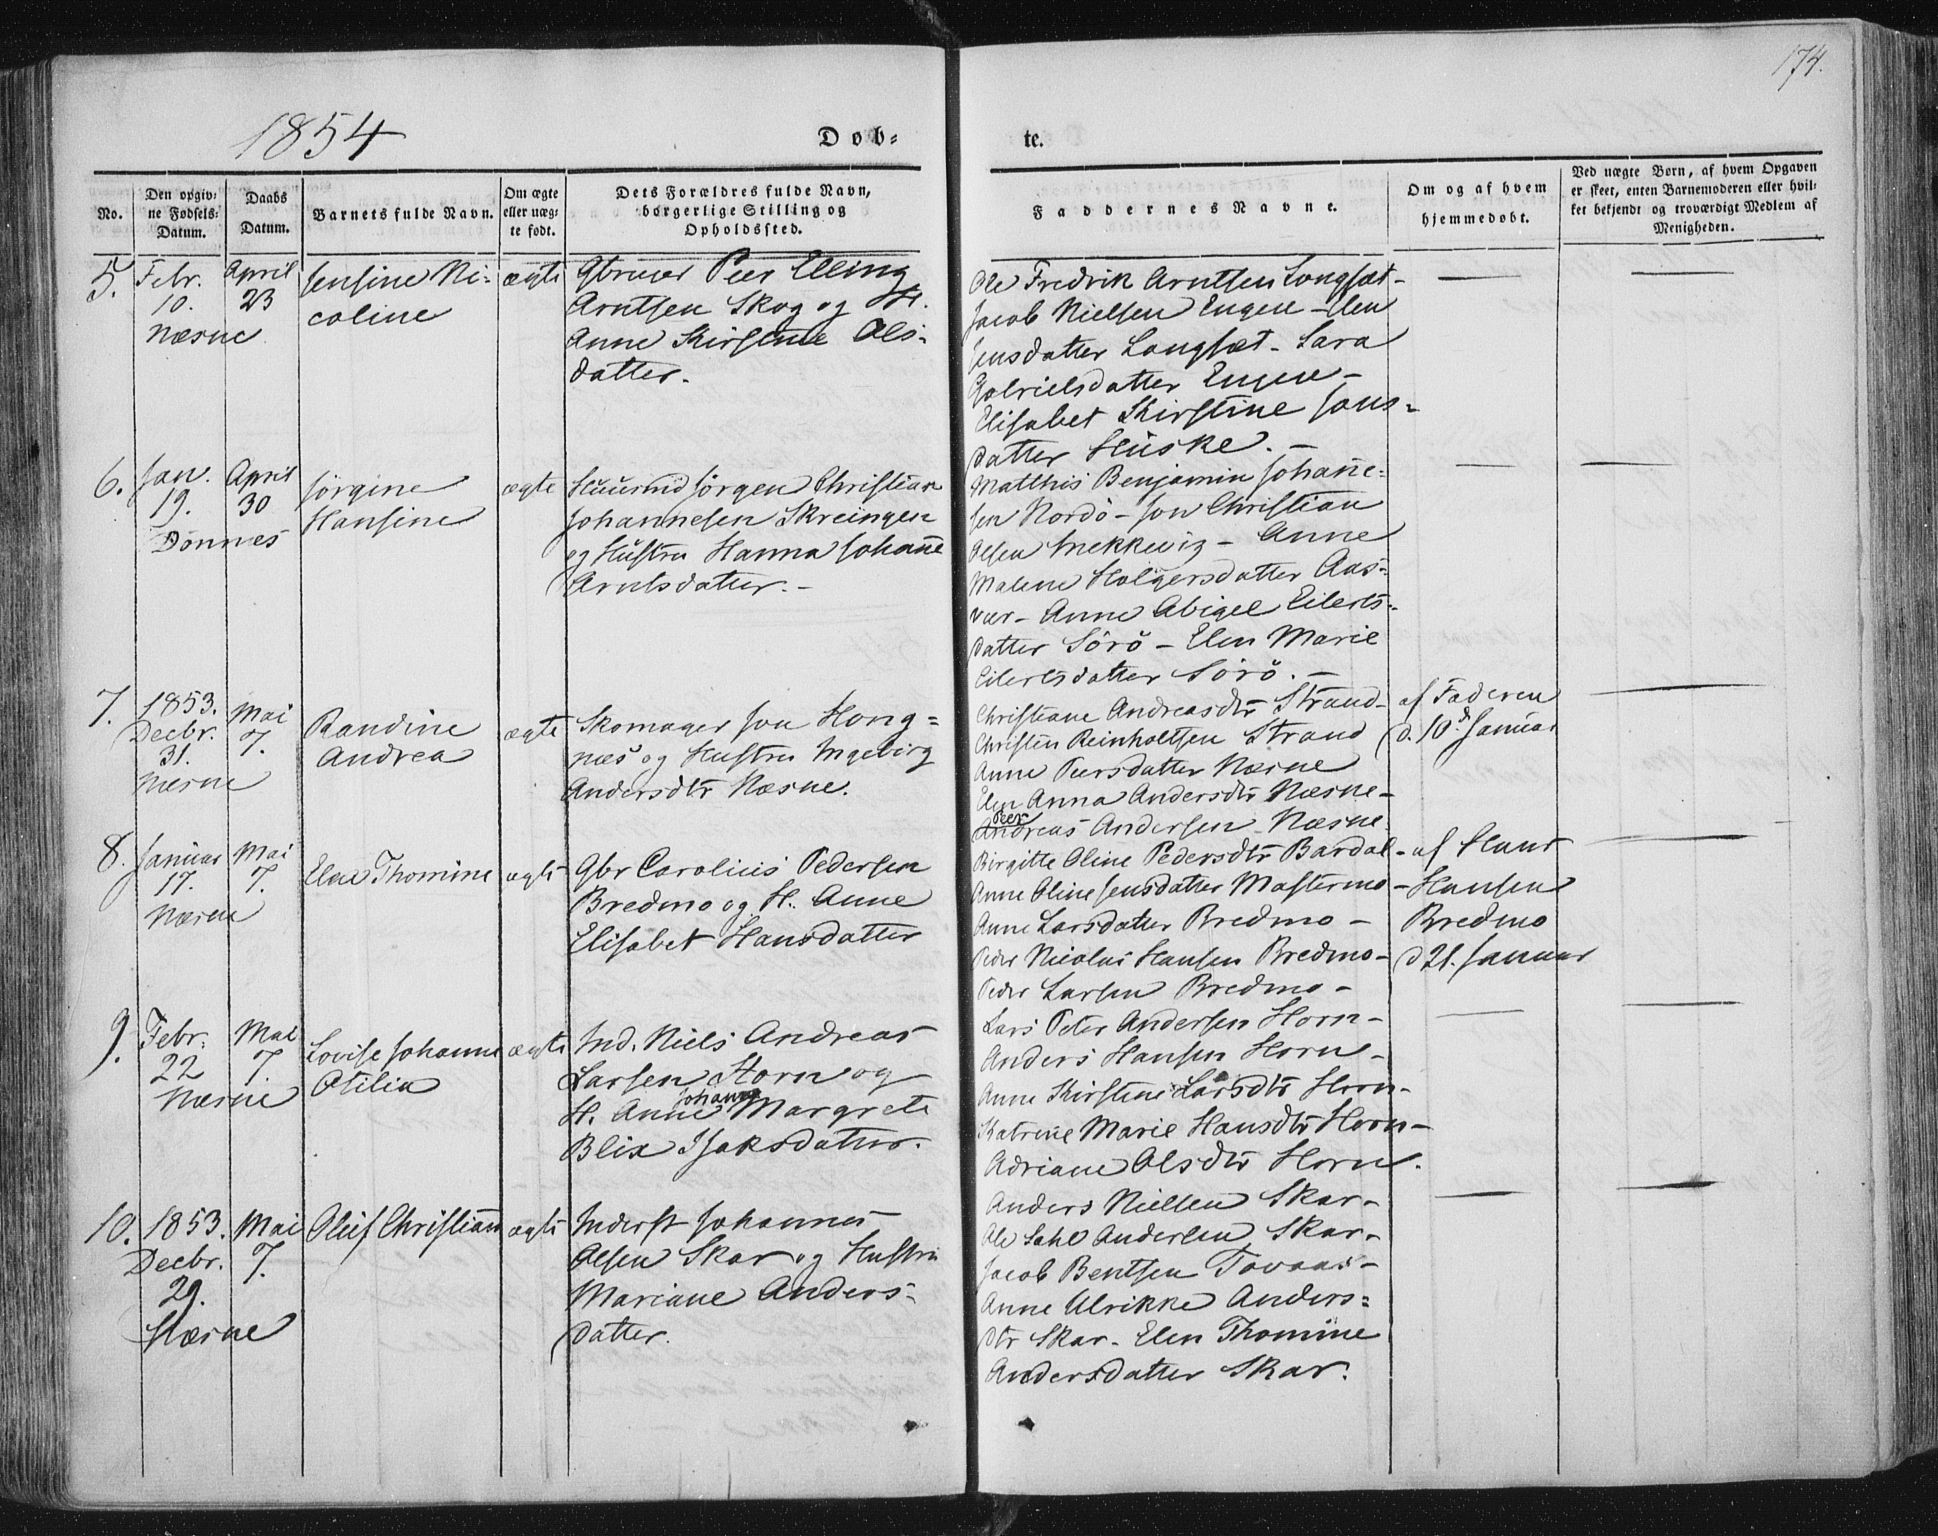 174.
1854
Døb-
te.
No.
Den opgiv-
ne Fødsels-
Datum.
Daabs
Datum.
Barnets fulde Navn.
Om ægte
eller uæg-
te født.
Dets Forældres fulde Navn,
borgerlige Stilling og
Opholdssted.
Faddernes Navne.
Om og af hvem
hjemmedøbt.
Ved uægte Børn, af hvem Opgaven
er skeet, enten Barnemoderen eller hvil-
ket bekjendt og troværdigt Medlem af
Menigheden.
5.
Febr.
10.
Næsne
April
23
Jensine Ni-
coline
ægte
Gbruer Peer Elling
Arntsen Skog og H.
Anne Kirstine Ols-
datter.
Ole Fredrik Arntsen Longset-
Jacob Nielsen Engen - Elen
Jensdatter Langset - Sara
Gabrielsdatter Engen -
Elisabet Kirstine Jons-
datter Huske. -
6.
Jan.
19.
Dønnes
April
30
Jørgine
Hansine
ægte
Huusmd Jørgen Christian
Johannesen Skreingen
og Hustru Hanna Johane
Arntsdatter. -
Matthis Benjamin Johane-
sen Nordö - Jon Christian
Olsen - Anne
Malene Holgersdatter Aas-
vær - Anne Abigel Eilerts-
datter Sörö - Elen Marie
Eilertsdatter Sörö. -
7.
1853.
Decbr.
31.
Næsne
Mai
7.
Randine
Andrea
ægte
Skomager Jon Hong-
næs og Hustru Ingebirg
Andersdtr Næsne.
Christiane Andreasdtr Strand-
Christen Reinholtsen Strand
Anne Peersdatter Næsne
Elen Anna Andersdtr Næsne-
Peer
Andreas Andersen Næsne
af Faderen
d. 10d Januar
8.
Januar
17.
Næsne
Mai
7.
Elen Thomine
ægte
Gbr Carolius Pedersen
Bredmo og H. Anne
Elisabet Hansdatter
Birgitte Oline Pedersdtr Bardal-
Anne Oline Jensdatter Mastermo-
Anne Larsdatter Bredmo -
Peder Nicolai Hansen Bredmo-
Peder Larsen Bredmo -
af Hans
Hansen
Bredmo
d 21. Januar
9.
Febr.
22
Næsne
Mai
7.
Lovise Johanne
Otilia
ægte
Ind. Niels Andreas
Larsen Horn og
Johanna
H. Anne Margrete
Blix Isaksdatter.
Lars Peter Andersen Horn-
Anders Hansen Horn-
Anne Kirstine Larsdtr Horn-
Katrine Marie Hansdtr Horn-
Adriane Olsdtr Horn.
10.
1853.
Decbr.
29.
Næsne
Mai
7.
Oluf Christian
ægte
Inderst Johannes
Olsen Skar og Hustru
Mariane Anders-
datter.
Anders Nielsen Skar-
Ole Andersen Skar-
Jacob Bentsen Tovaas-
Anne Ulrikke Anders-
dtr Skar - Elen Thomine
Andersdatter Skar.